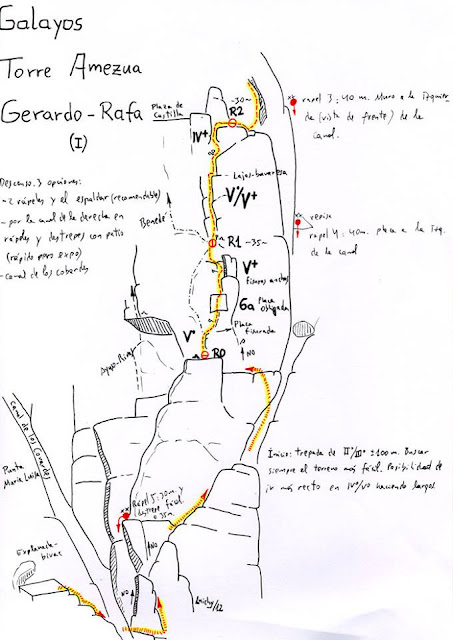 Galayos
Torre Amezua
Gerardo-Rafa
(I)
Descenso. 3 opciones:
-2 rápeles y el espaldar (recomendable)
-por la canal de la derecha en
rápeles y destrepes con patio
(rápido pero expo)
-canal de los cobardes
Plaza de
Castilla
~30~
R2
IV+
Lajas-bavaresa
V°/V+
Benedé
R1 ~35~
V+
fisuras anchas
6a Placa
obligada
Placa
fisurada
V°
NO
R0
rapel 3: 40 m. Muro a la izquier
da (vista de frente) de la
canal.
repisa
rapel 4: 40m. placa a la izq.
de la canal
Inicio: trepada de II°/III° ±100m. Buscar
siempre el terreno más fácil. Posibilidad de
ir más recto en IV°/V° haciendo largos.
Canal de los Cobardes
Punta
María Luisa
Rápel 5: 30m. y
destrepe fácil
o 35m.
Explanada-
bivac
NO
NO